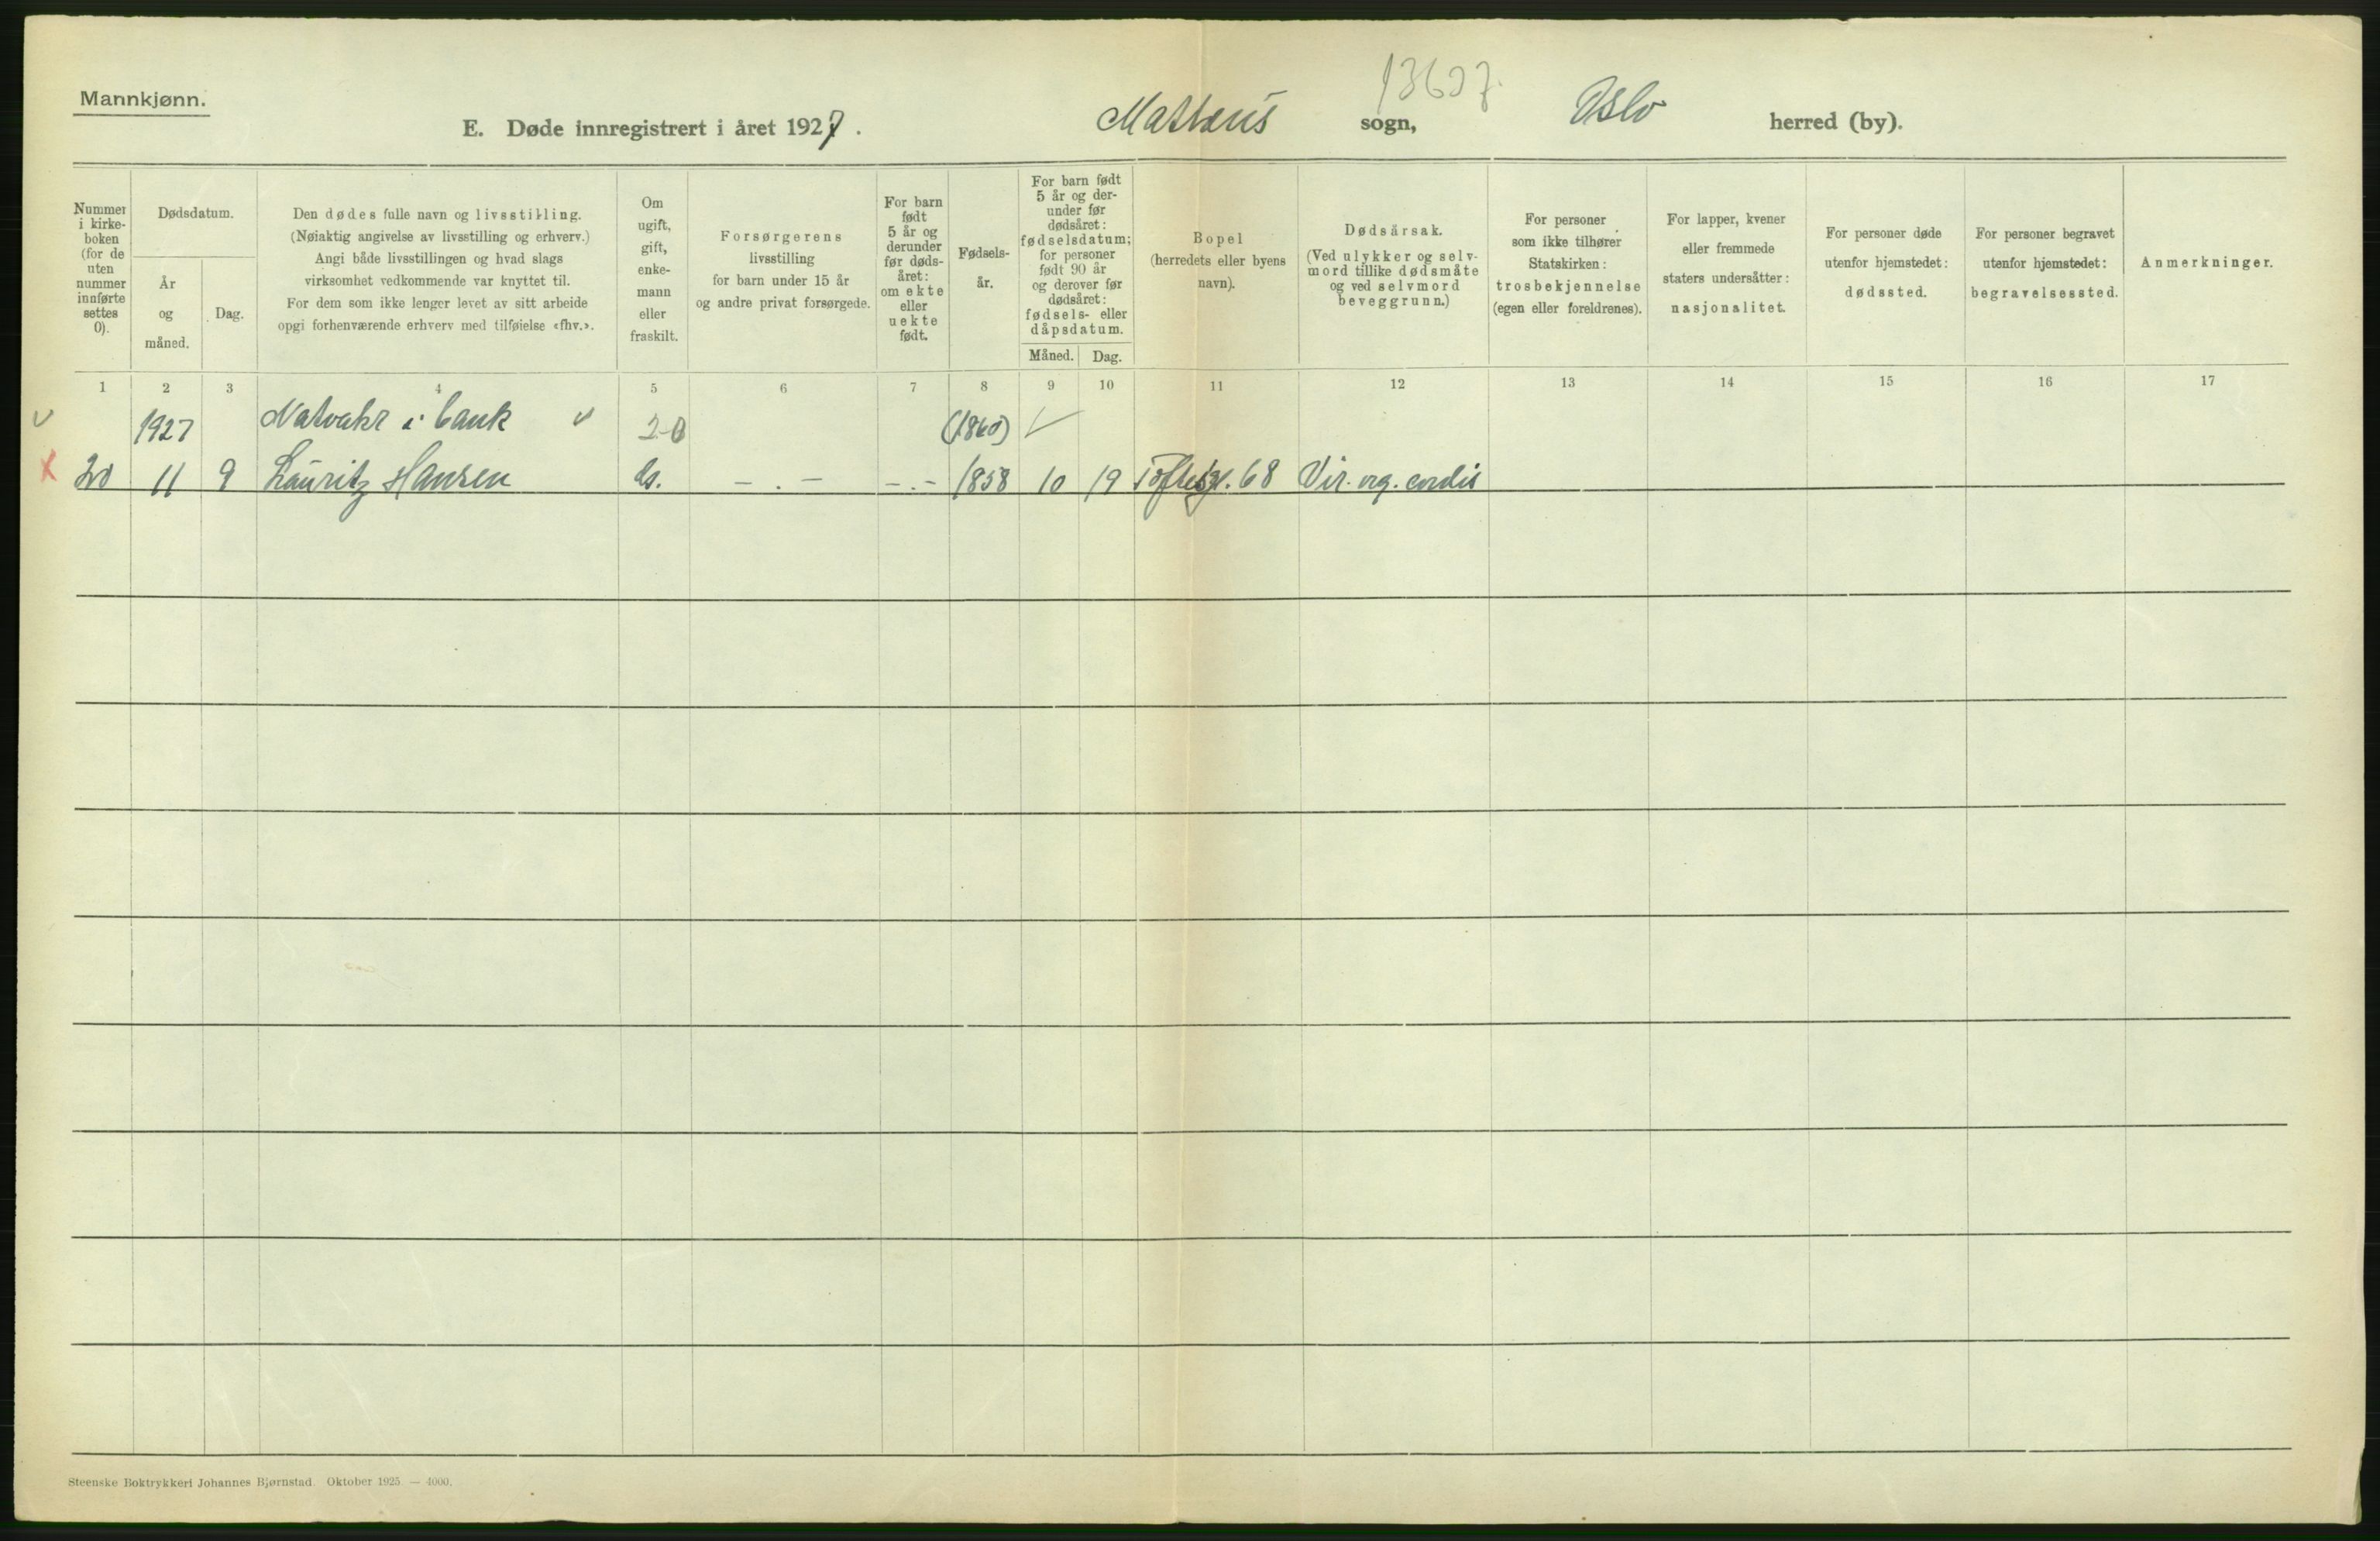 Mannkjønn.
E. Døde innregistrert i året 1927. Matteus sogn, Oslo herred (by).
Nummer i kirkeboken (for de uten nummer innførte settes 0).
Dødsdatum.
År og måned.
Dag.
Den dødes fulle navn og livsstilling.
(Nøiaktig angivelse av livsstilling og erhverv.)
Angi både livsstillingen og hvad slags
virksomhet vedkommende var knyttet til.
For dem som ikke lenger levet av sitt arbeide
opgi forhenværende erhverv med tilføielse «fhv.».
Om ugift, gift, enkemann eller fraskilt.
Forsørgerens
livsstilling
for barn under 15 år
og andre privat forsørgede.
For barn født 5 år og derunder før dødsåret: om ekte eller uekte født.
Fødselsår.
For barn født 5 år og derunder før dødsåret: fødselsdatum; for personer født 90 år og derover før dødsåret: fødsels- eller dåpsdatum.
Måned. Dag.
Bopel
(herredets eller byens
navn).
Dødsårsak.
(Ved ulykker og selvmord tillike dødsmåte og ved selvmord beveggrunn.)
For personer
som ikke tilhører
Statskirken:
trosbekjennelse
(egen eller foreldrenes).
For lapper, kvener
eller fremmede
staters undersåtter:
nasjonalitet.
For personer døde
utenfor hjemstedet:
dødssted.
For personer begravet
utenfor hjemstedet:
begravelsessted.
Anmerkninger.
1 2 3 4 5 6 7 8 9 10 11 12 13 14 15 16 17
1927 Natvakt i bank 20 (1860)
20 11 9 Lauritz Hansen - . - - . - 1858 10 19 Toftesgt. 68 Vit. org. cordis
Steenske Boktrykkeri Johannes Bjørnstad. Oktober 1925. — 4000.